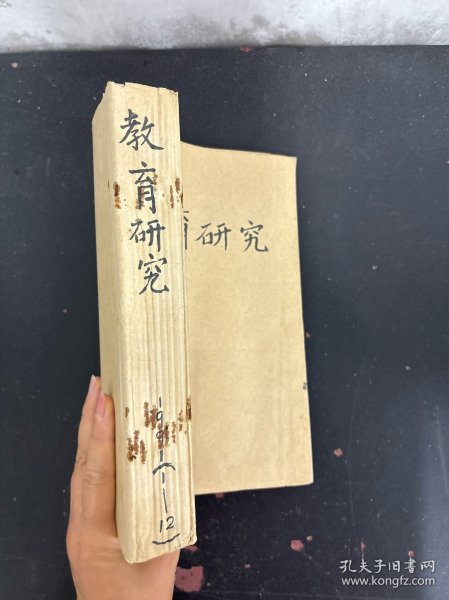 教育研究
1991(1—12)
育研究
孔夫子旧书网
www.kongfz.com